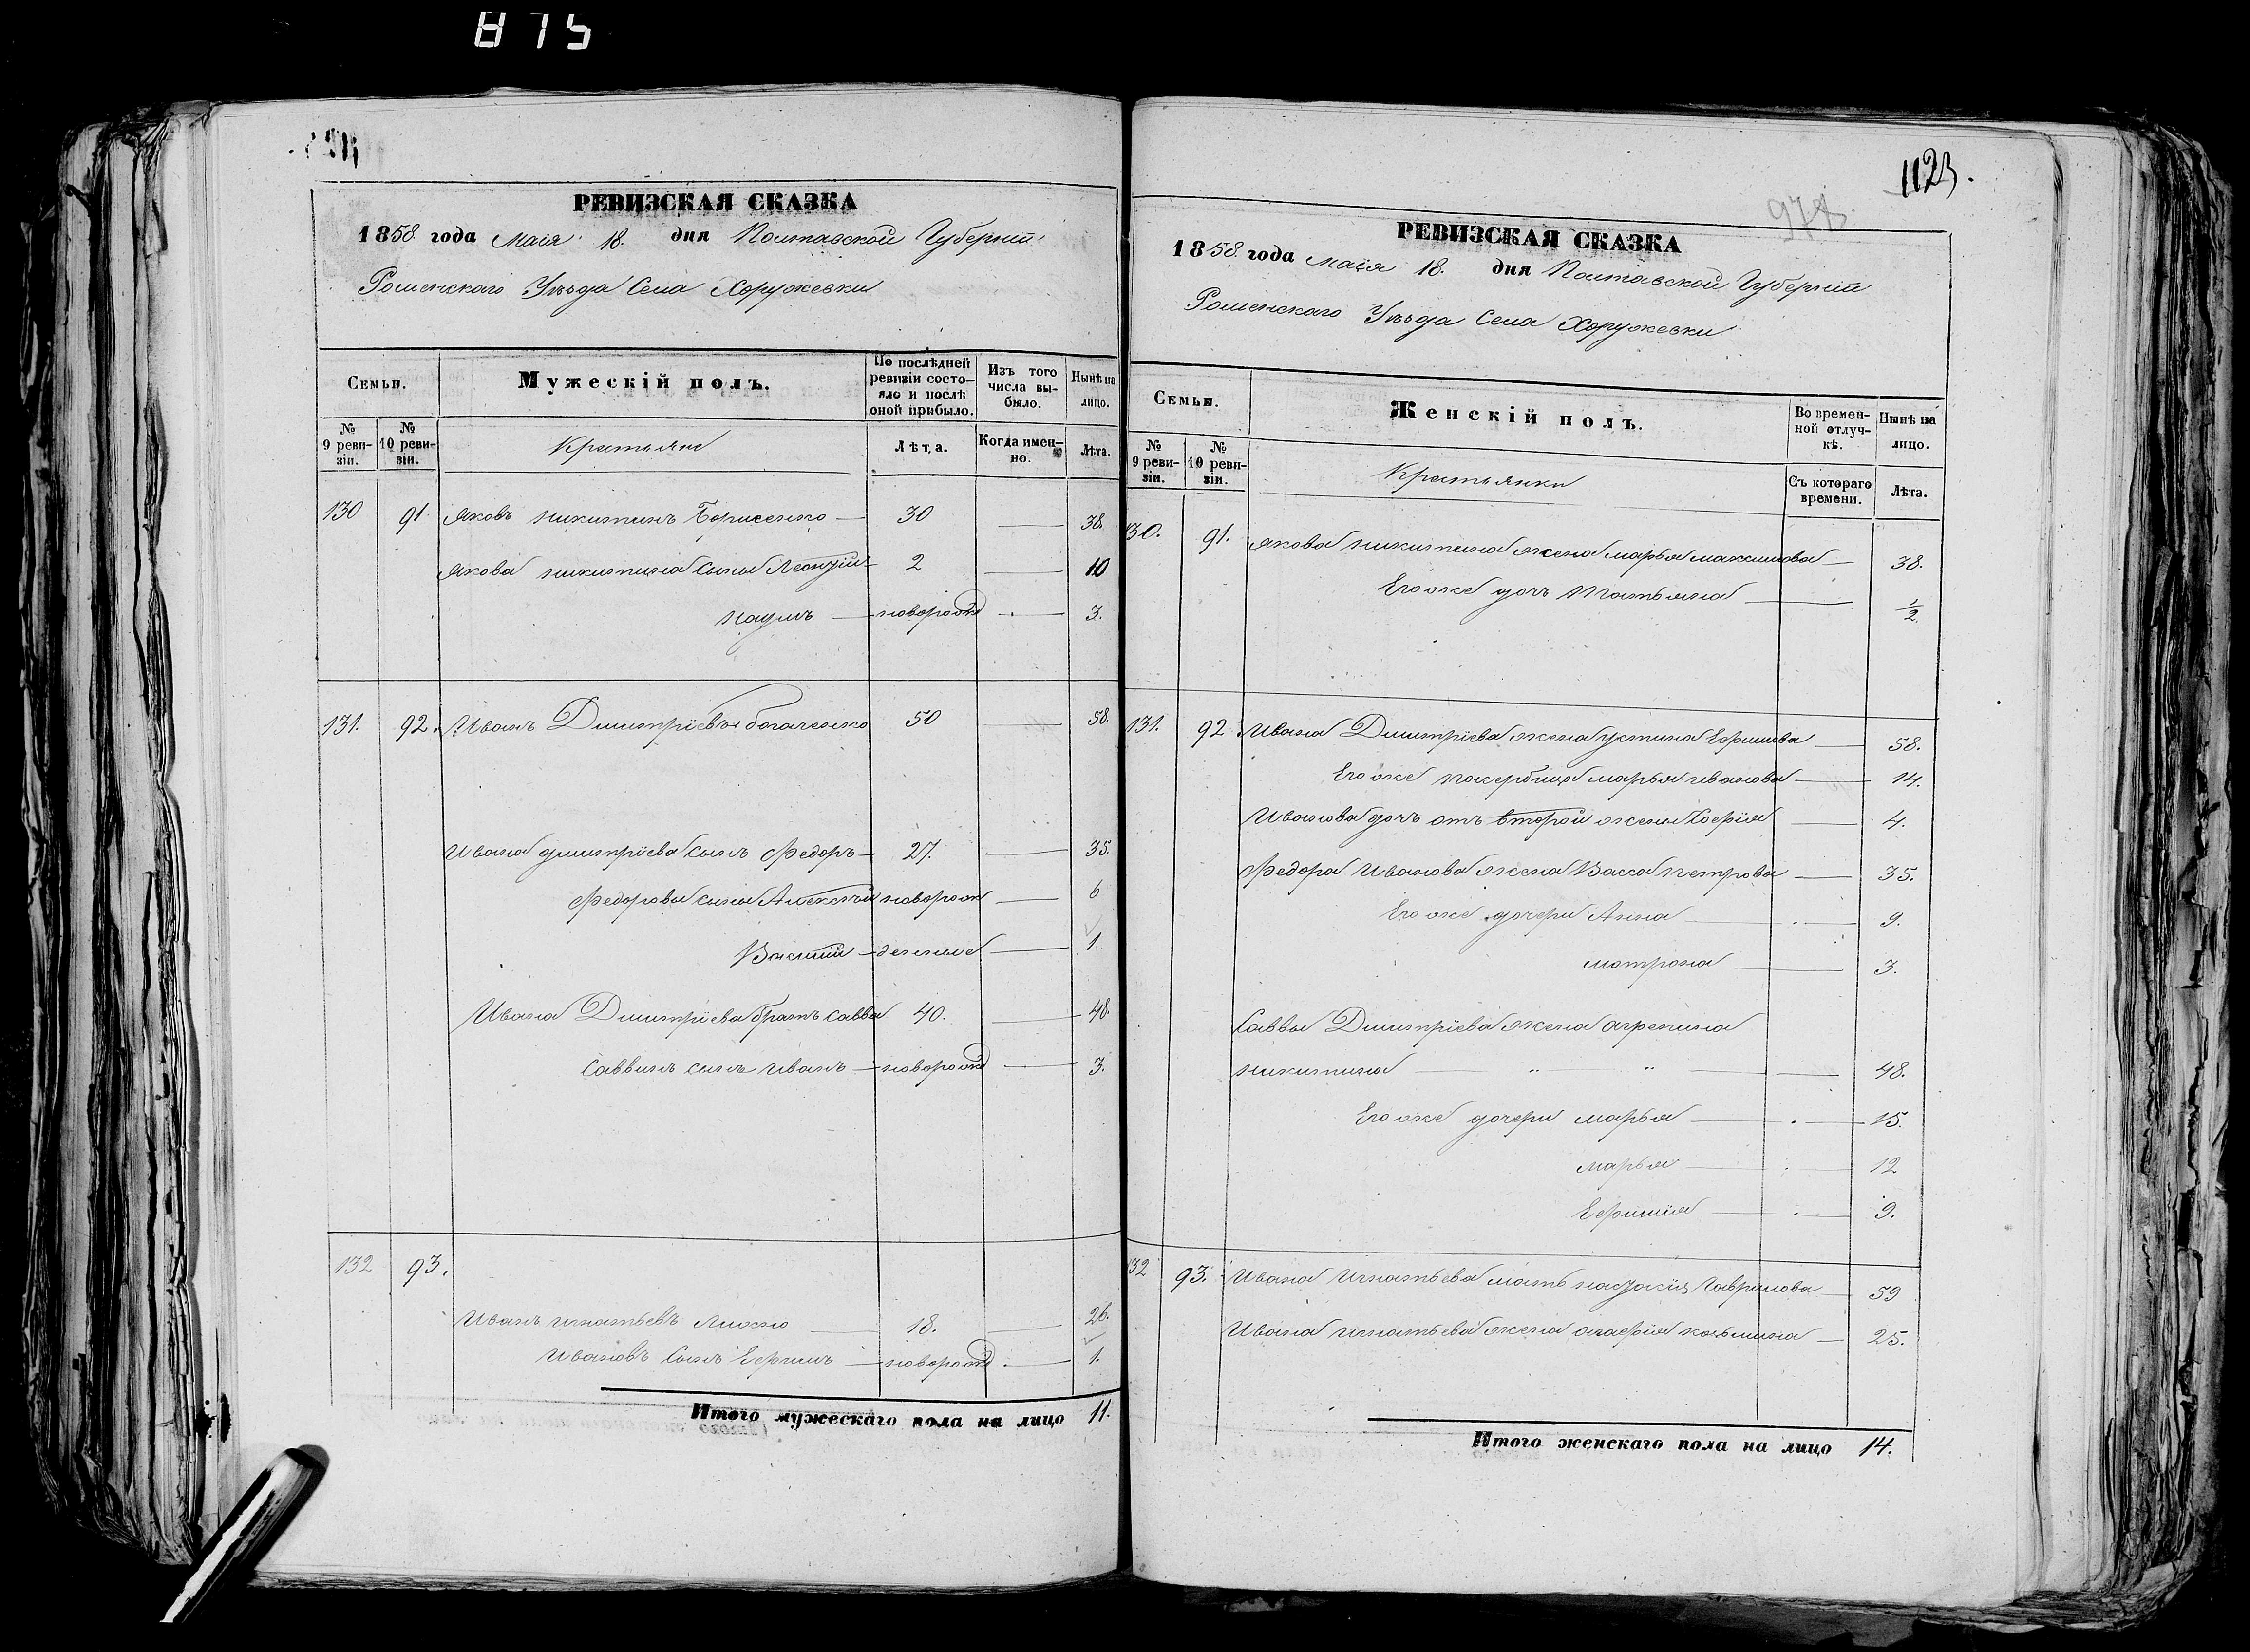 875
РЕВИЗСКАЯ СКАЗКА
1858 года Маія 18. дня Полтавской Губерніи
Роменскаго Уѣзда Села Хоружевки
Семьи.
Мужескій полъ.
По послѣдней ревизіи состояло и послѣ оной прибыло.
Изъ того числа выбыло.
Нынѣ на лицо.
№ 9 ревизіи.
№ 10 ревизіи.
Крестьяне
Лѣта.
Когда именно.
Лѣта.
130 91 Яковъ Никитинъ Борисенко — 30 — 38.
Якова Никитина сыны Леонтій 2 — 10
Наумъ — новорожд — 3.
131. 92. Иванъ Димитріевъ Богаченко 50 — 58.
Ивана Димитріева сынъ Федоръ — 27. — 35.
Федоровы сыны Алексѣй новорож — 6
Василій — денные — 1.
Ивана Димитріева братъ Савва 40. — 48.
Саввинъ сынъ Иванъ — новорожд — 3.
132 93.
Иванъ Игнатьевъ — 18. — 26.
Ивановъ сынъ Ефимъ — новорожд. — 1.
Итого мужескаго пола на лицо 11.
1123.
978
РЕВИЗСКАЯ СКАЗКА
1858 года Маія 18. дня Полтавской Губерніи
Роменскаго Уѣзда Села Хоружевки
Семьи.
Женскій полъ.
Во временной отлучкѣ.
Нынѣ на лицо.
№ 9 ревизіи.
№ 10 ревизіи.
Крестьянки
Съ котораго времени.
Лѣта.
130. 91. Якова Никитина жена Марья Максимова — 38.
Его же дочь Татьяна — 1/2
131. 92. Ивана Димитріева жена Устина Ефимова — 58.
Его же Марья Иванова — 14.
Иванова дочь отъ второй жены — 4.
Федора Иванова жена Васса Петрова — 35.
Его же дочери Анна — 9.
Матрона — 3.
Саввы Димитріева жена Агрепина
Никитина — " " — 48.
Его же дочери Марья — 15.
Марья — 12
Ефимія — 9.
132 93. Ивана Игнатьева мать Гаврилова — 59
Ивана Игнатьева жена Агафія Козьмина — 25.
Итого женскаго пола на лицо 14.